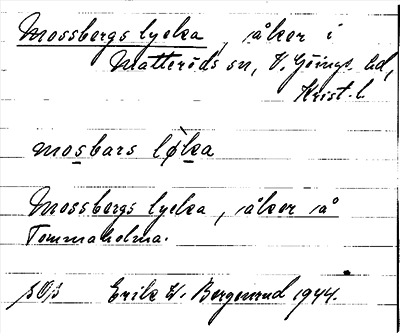 Mossbergs lycka, åker i
Matteröds sn, V. Göinge hd,
Krist. l
mosbars lø̀ka
Mossbergs lycka, åker på
Tommaholma.
Erik W. Bergstrand 1944.